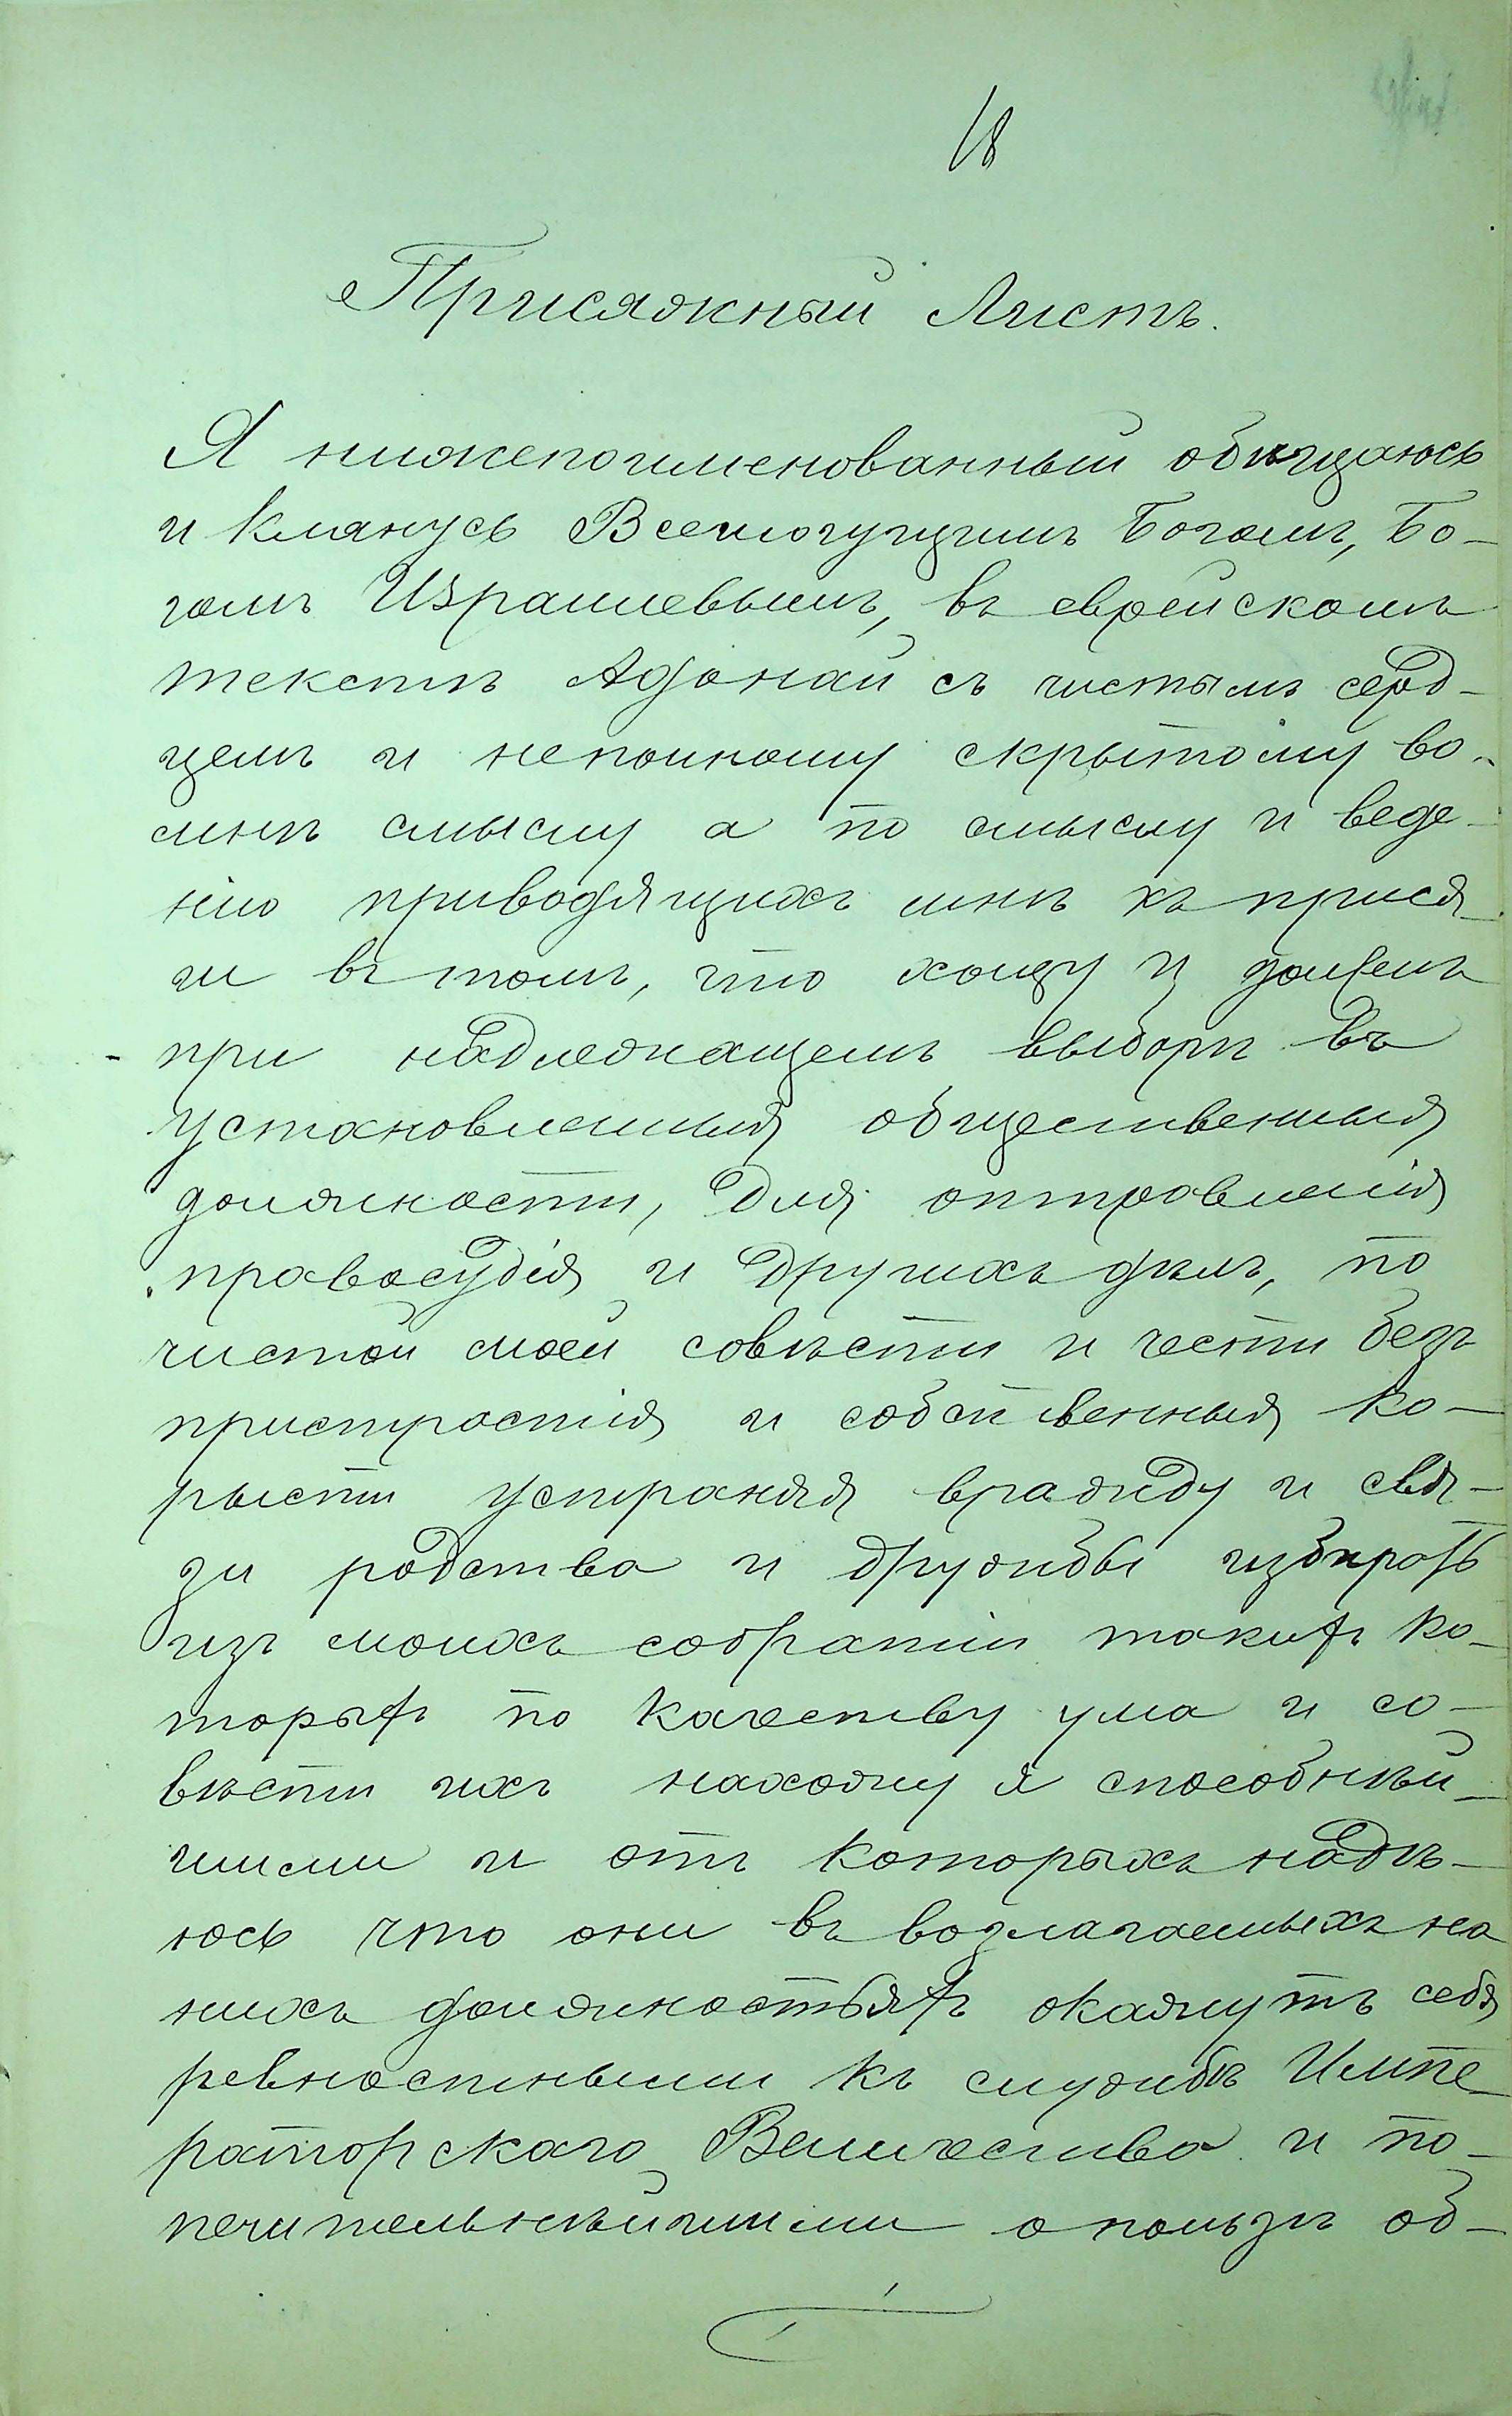 18
Присяжный Листъ.
Я нижепоименованный обѣщаюсь
и клянусь Всемогущимъ Богомъ, Бо-
гомъ Израилевымъ, въ еврейскомъ
текстѣ Адонай съ чистымъ серд-
цемъ и непоиному скрытому во
мнѣ смыслу а по смыслу и веде-
нію приводящихъ мнѣ къ прися-
ги въ томъ, что хощу и долженъ
при надлежащемъ выборѣ въ
установленныя общественныя
должности, для отправленія
правосудія и другихъ дѣлъ, по
чистой моей совѣсти и чести безъ
пристрастія и собственныя ко-
рысти устраняя вражду и свя-
зи родства и дружбы избирать
изъ моихъ собратій такихъ ко-
торыхъ по качеству ума и со-
вѣсти ихъ нахожу я способнѣй-
шими и отъ которыхъ надѣ-
юсь что они въ возлагаемыхъ на
нихъ должностьяхъ окажутъ себя
ревностными къ службѣ Импе
раторскаго Величества и по-
печительнѣйшими о пользѣ об-